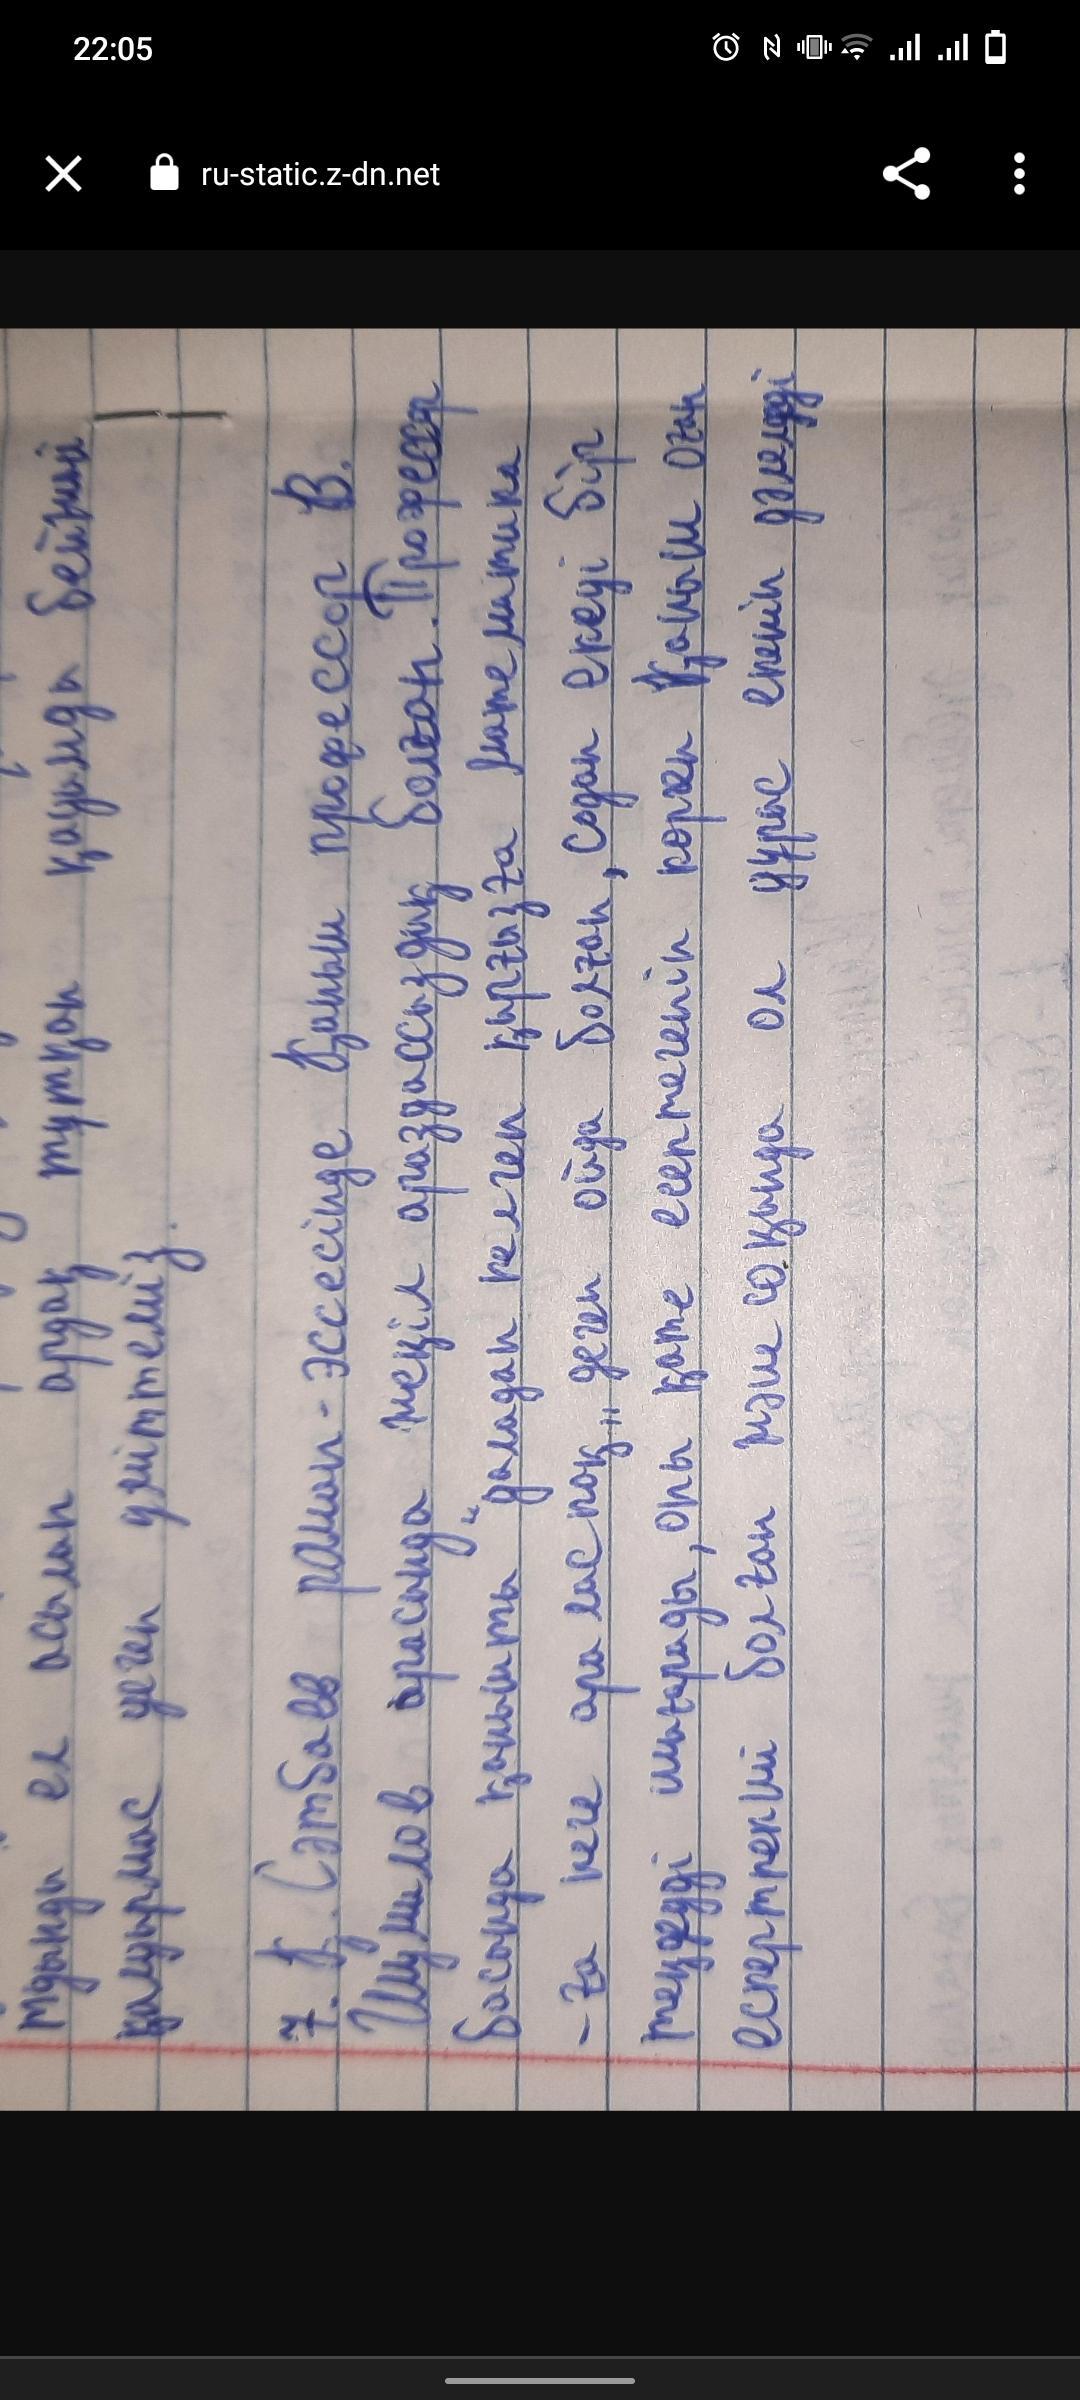 22:05
ru-static.z-dn.net
тдынды ел асылан ардақ тұтқан қауымды бейнті
қалдырмас деген үмітпеміз.
7. Қ. Сәтбаев роман-эссесінде Қаныш профессор В.
Шумилов арасында текіл араздассыздық болған. Профессор
басында қанышты "даладан келген қырғызға математика
-ға неге араласпоқ" деген ойда болған, содан екеуі бір
теңдеуді шығарады, оны қате есептегенін көрген Қаныш оған
ескертпекші болған және соңында ол дұрыс екенін дәлелдеді